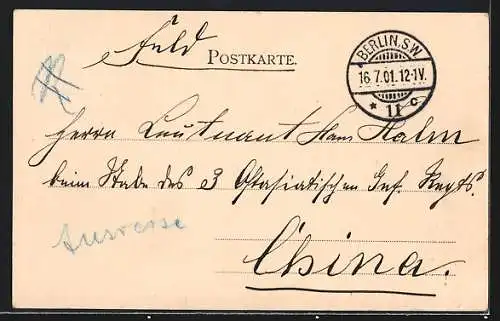 Feld POSTKARTE.
BERLIN, S.W.
16.7.01.12-1V.
* 11 c
Herrn Leutnant Hans Halm
beim Stabe des 3 Ostasiatischen Inf. Regts.
China.